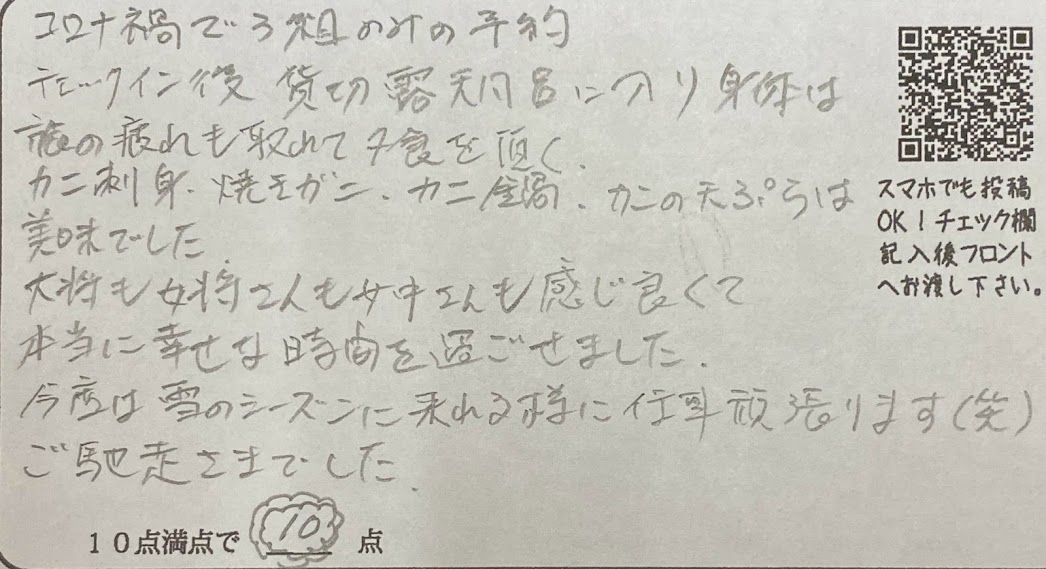 コロナ禍で3組のみの予約
チェックイン後 貸切露天風呂に入り身体は
旅の疲れも取れて夕食を頂く.
カニ刺身、焼きガニ、カニ鍋、カニの天ぷらは
美味でした.
大将も女将さんも女中さんも感じ良くて
本当に幸せな時間を過ごせました.
今度は雪のシーズンに来れる様に仕事頑張ります(笑)
ご馳走さまでした.
10点満点で 10 点
スマホでも投稿
OK!チェック欄
記入後フロント
へお渡し下さい。